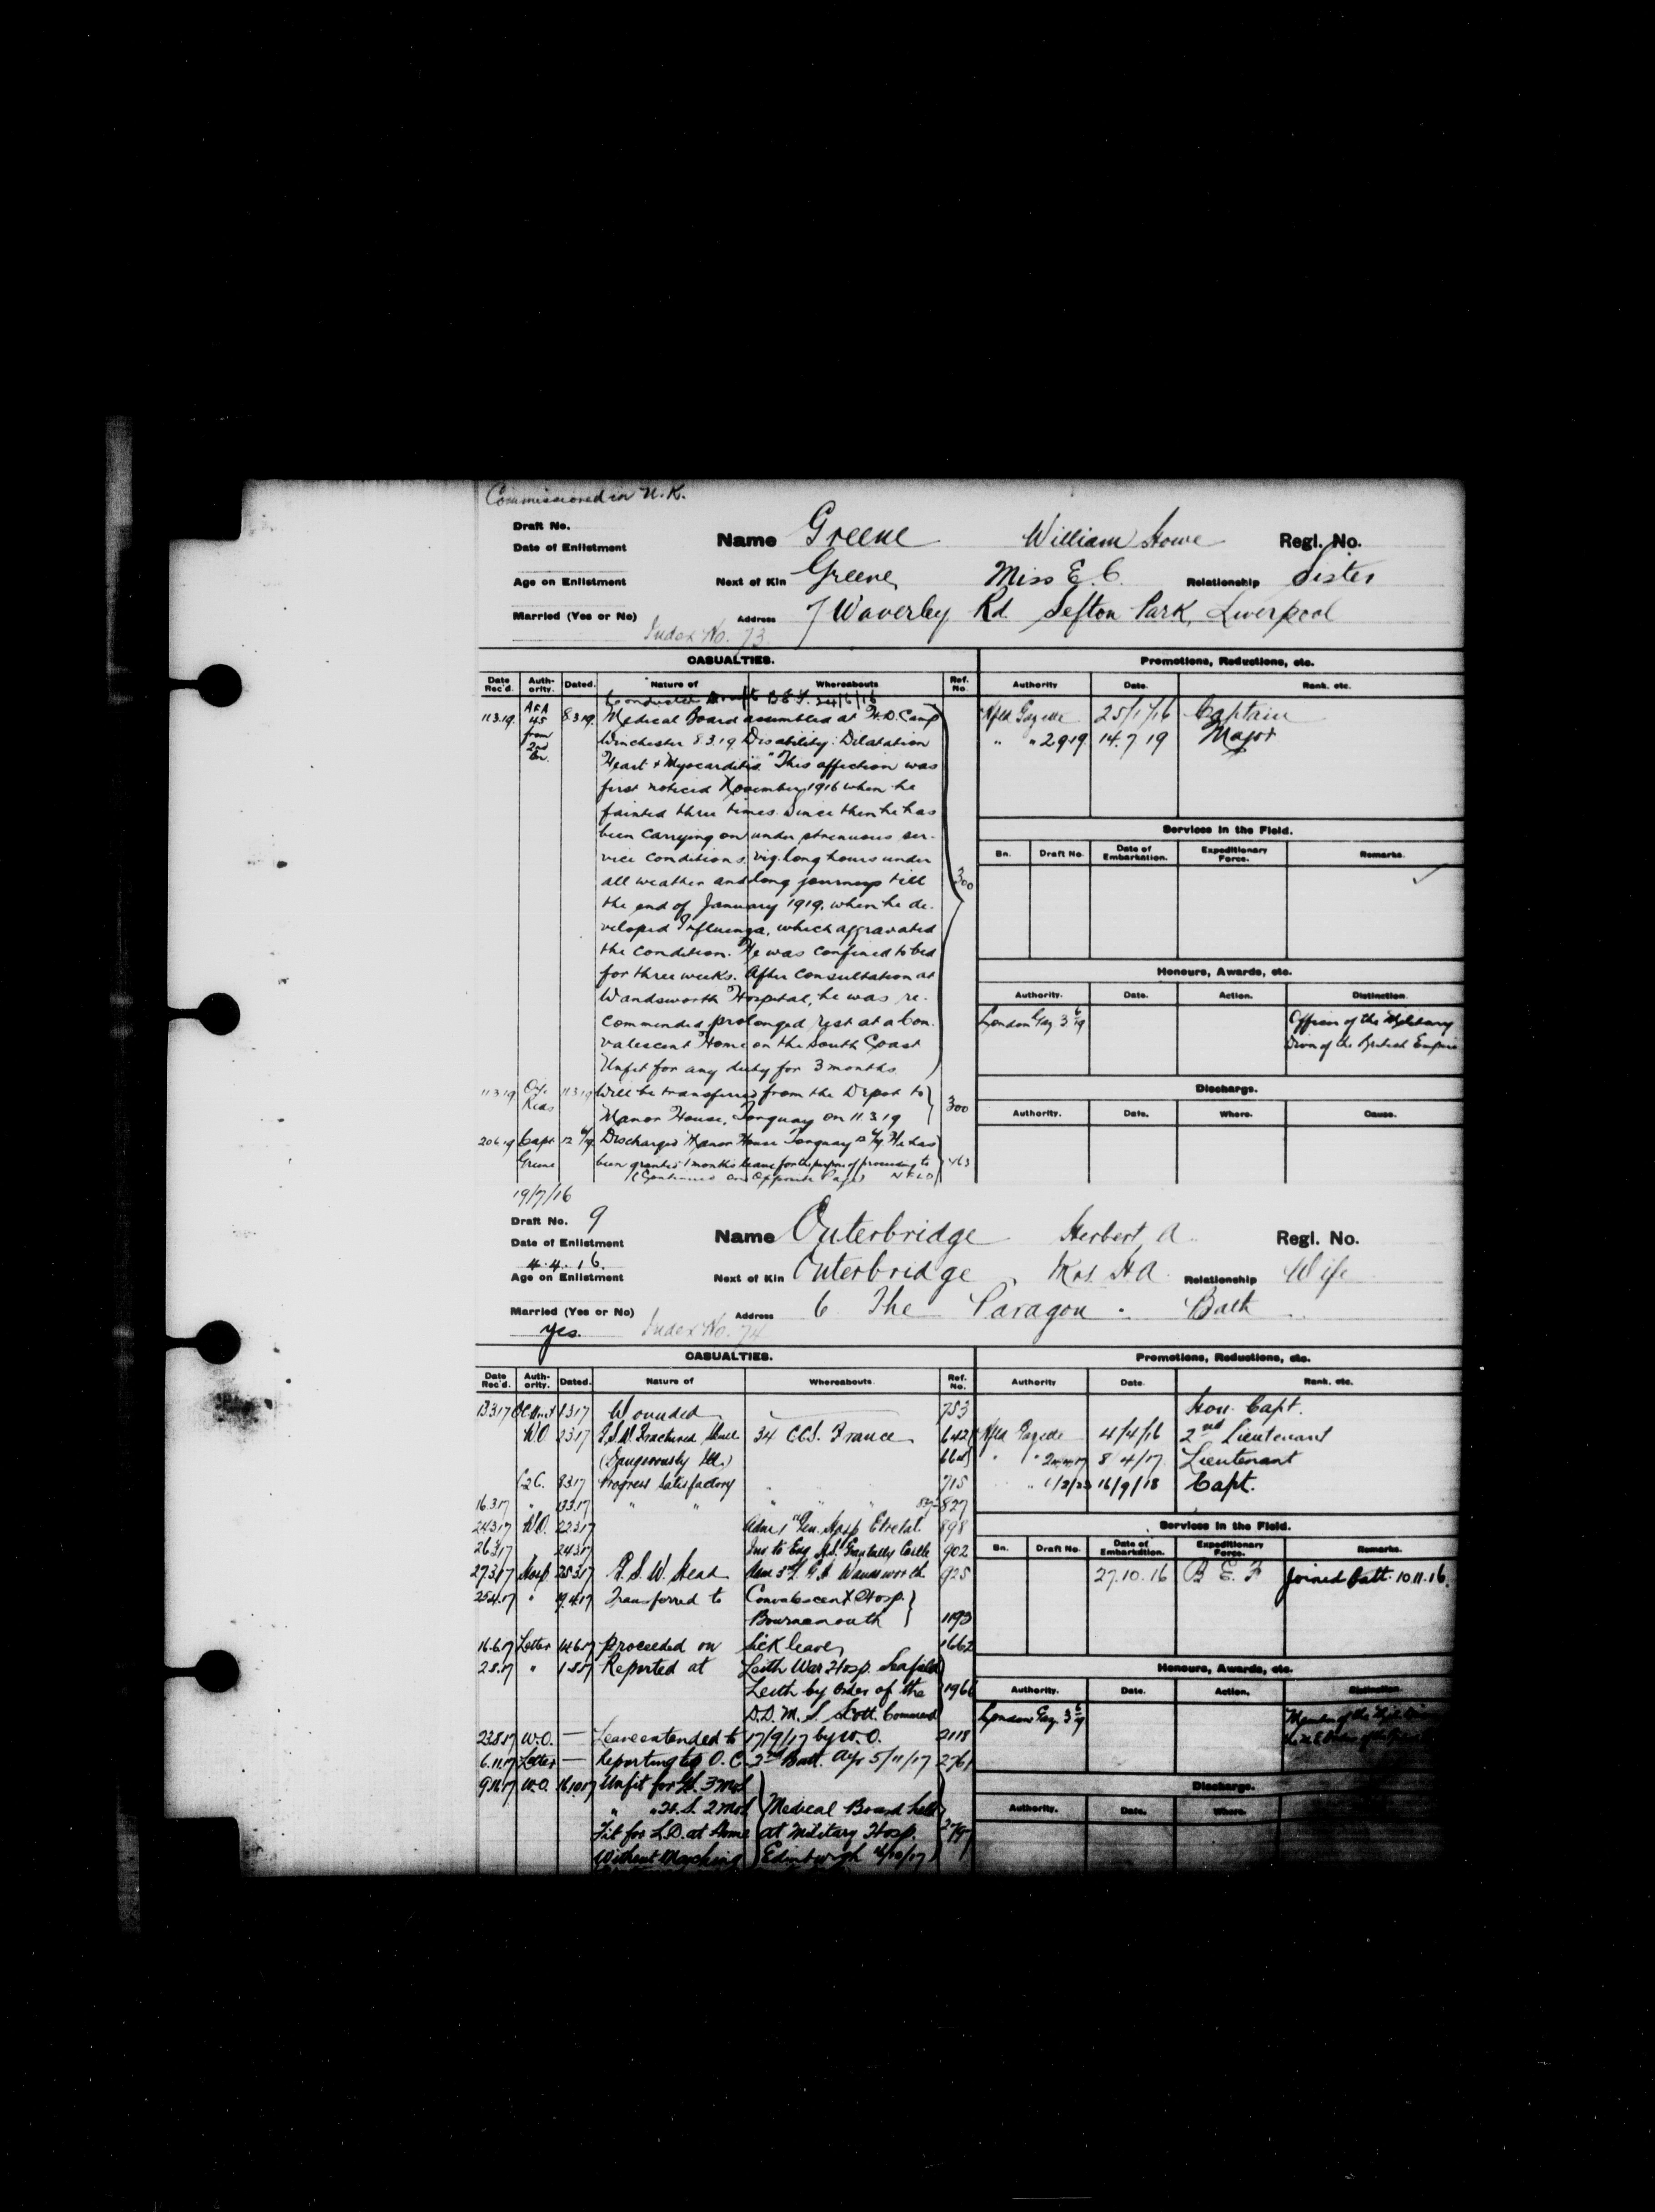 Commissioned in U.K.
Draft No.
Date of Enlistment
Name Greene William Howe Regl. No.
Age on Enlistment
Next of Kin Greene, Miss E. C. Relationship Sister
Married (Yes or No)
Address 7 Waverley Rd. Sefton Park, Liverpool
Index No. 73
CASUALTIES. Promotions, Reductions, etc.
Date Rec'd. Auth-ority. Dated. Nature of Whereabouts Ref. No. Authority Date. Rank, etc.
Conducted Draft B.E.F. 24/6/16
11.3.19. AFA 45 from 2nd Bn. 8.3.19. Medical Board assembled at H.D. Camp Nfld Gazette 25/1/16 Captain
Winchester 8.3.19. Disability: Dilatation " " 2.9.19. 14.7.19 Major
Heart & Myocarditis. "This affection was
first noticed November, 1916 when he
fainted three times. Since then he has
been carrying on under strenuous ser-
vice conditions, viz. long hours under
all weather and long journeys till
the end of January 1919, when he de-
veloped Influenza, which aggravated
the condition. He was confined to bed
for three weeks. After consultation at
Wandsworth Hospital, he was re-
commended prolonged rest at a Con-
valescent Home on the South Coast
Unfit for any duty for 3 months
300
Services in the Field.
Bn. Draft No. Date of Embarkation. Expeditionary Force. Remarks.
Honours, Awards, etc.
Authority. Date. Action. Distinction.
London Gaz. 3/6/19 Officer of the Military
Divn of the British Empire
Discharge.
Authority. Date. Where. Cause.
11.3.19 11.3.19 Will be transferred from the Depot to
Manor House, Torquay on 11.3.19 300
20.6.19 Capt Greene 12/6/19 Discharged Manor House Torquay 12/6/19. He has
been granted 1 months leave for the purpose of proceeding to
(Continued on Opposite Page) NFLD
19/7/16
Draft No. 9
Date of Enlistment
4.4.16.
Name Outerbridge Herbert A. Regl. No.
Age on Enlistment
Next of Kin Outerbridge, Mrs. H.A. Relationship Wife
Married (Yes or No)
yes.
Address 6 The Paragon. Bath
Index No. 74
CASUALTIES. Promotions, Reductions, etc.
Date Rec'd. Auth-ority. Dated. Nature of Whereabouts. Ref. No. Authority Date. Rank, etc.
13.3.17 1.3.17 Wounded 753 Hon. Capt.
W.O 2.3.17 G.S.W. Fractured Skull 34 C.C.S. France 642 Nfld Gazette 4/4/16 2nd Lieutenant
(Dangerously Ill.) " " 8/4/17 Lieutenant
8.3.17 Progress Satisfactory 715 16/9/18 Capt.
16.3.17 " 13.3.17 " " " " " 827
24.3.17 W.O. 22.3.17 Adm. 1st Gen. Hosp Etretat. 898
26.3.17 24.3.17 Inv to Eng H.S. Grantully Castle 902
27.3.17 Hosp. 25.3.17 G.S.W. Head Adm 3rd L. G.H. Wandsworth. 925
25.4.17 " 9.4.17 Transferred to Convalescent Hosp.
Bournemouth 1193
16.6.17 Letter 14.6.17 proceeded on sick leave 1662
2.8.17 " 1.8.17 Reported at Leith War Hosp. Seafield
Leith by order of the 1966
D.D.M.S. Scott. Command
23.8.17 W.O. — Leave extended to 17/9/17 by W.O. 2118
6.11.17 Letter — Reporting to O.C. 2nd Batt. Ayr 5/11/17 2761
9.11.17 W.O. 16.10.17 Unfit for G.S. 3 mos
" " H.S. 2 mos Medical Board held
Fit for L.D. at Home at Military Hosp.
Without Marching Edinburgh
Services in the Field.
Bn. Draft No. Date of Embarkation. Expeditionary Force. Remarks.
27.10.16 B.E.F joined Batt. 10.11.16.
Honours, Awards, etc.
Authority. Date. Action. Distinction.
London Gaz. 3/6/19 Member of the
Discharge.
Authority. Date. Where.